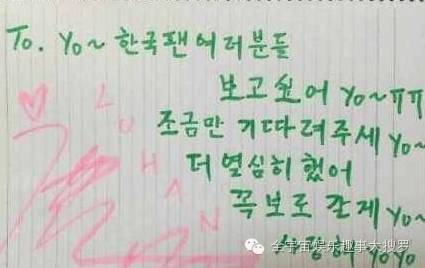 To. yo~ 한국팬여러분들
보고싶어 yo~ㅠㅠ
조금만 기다려주세 yo~
더 열심히 했어
꼭 보로 갈게 yo~
yoyo
L
U
H
A
N
全宇宙娱乐趣事大搜罗